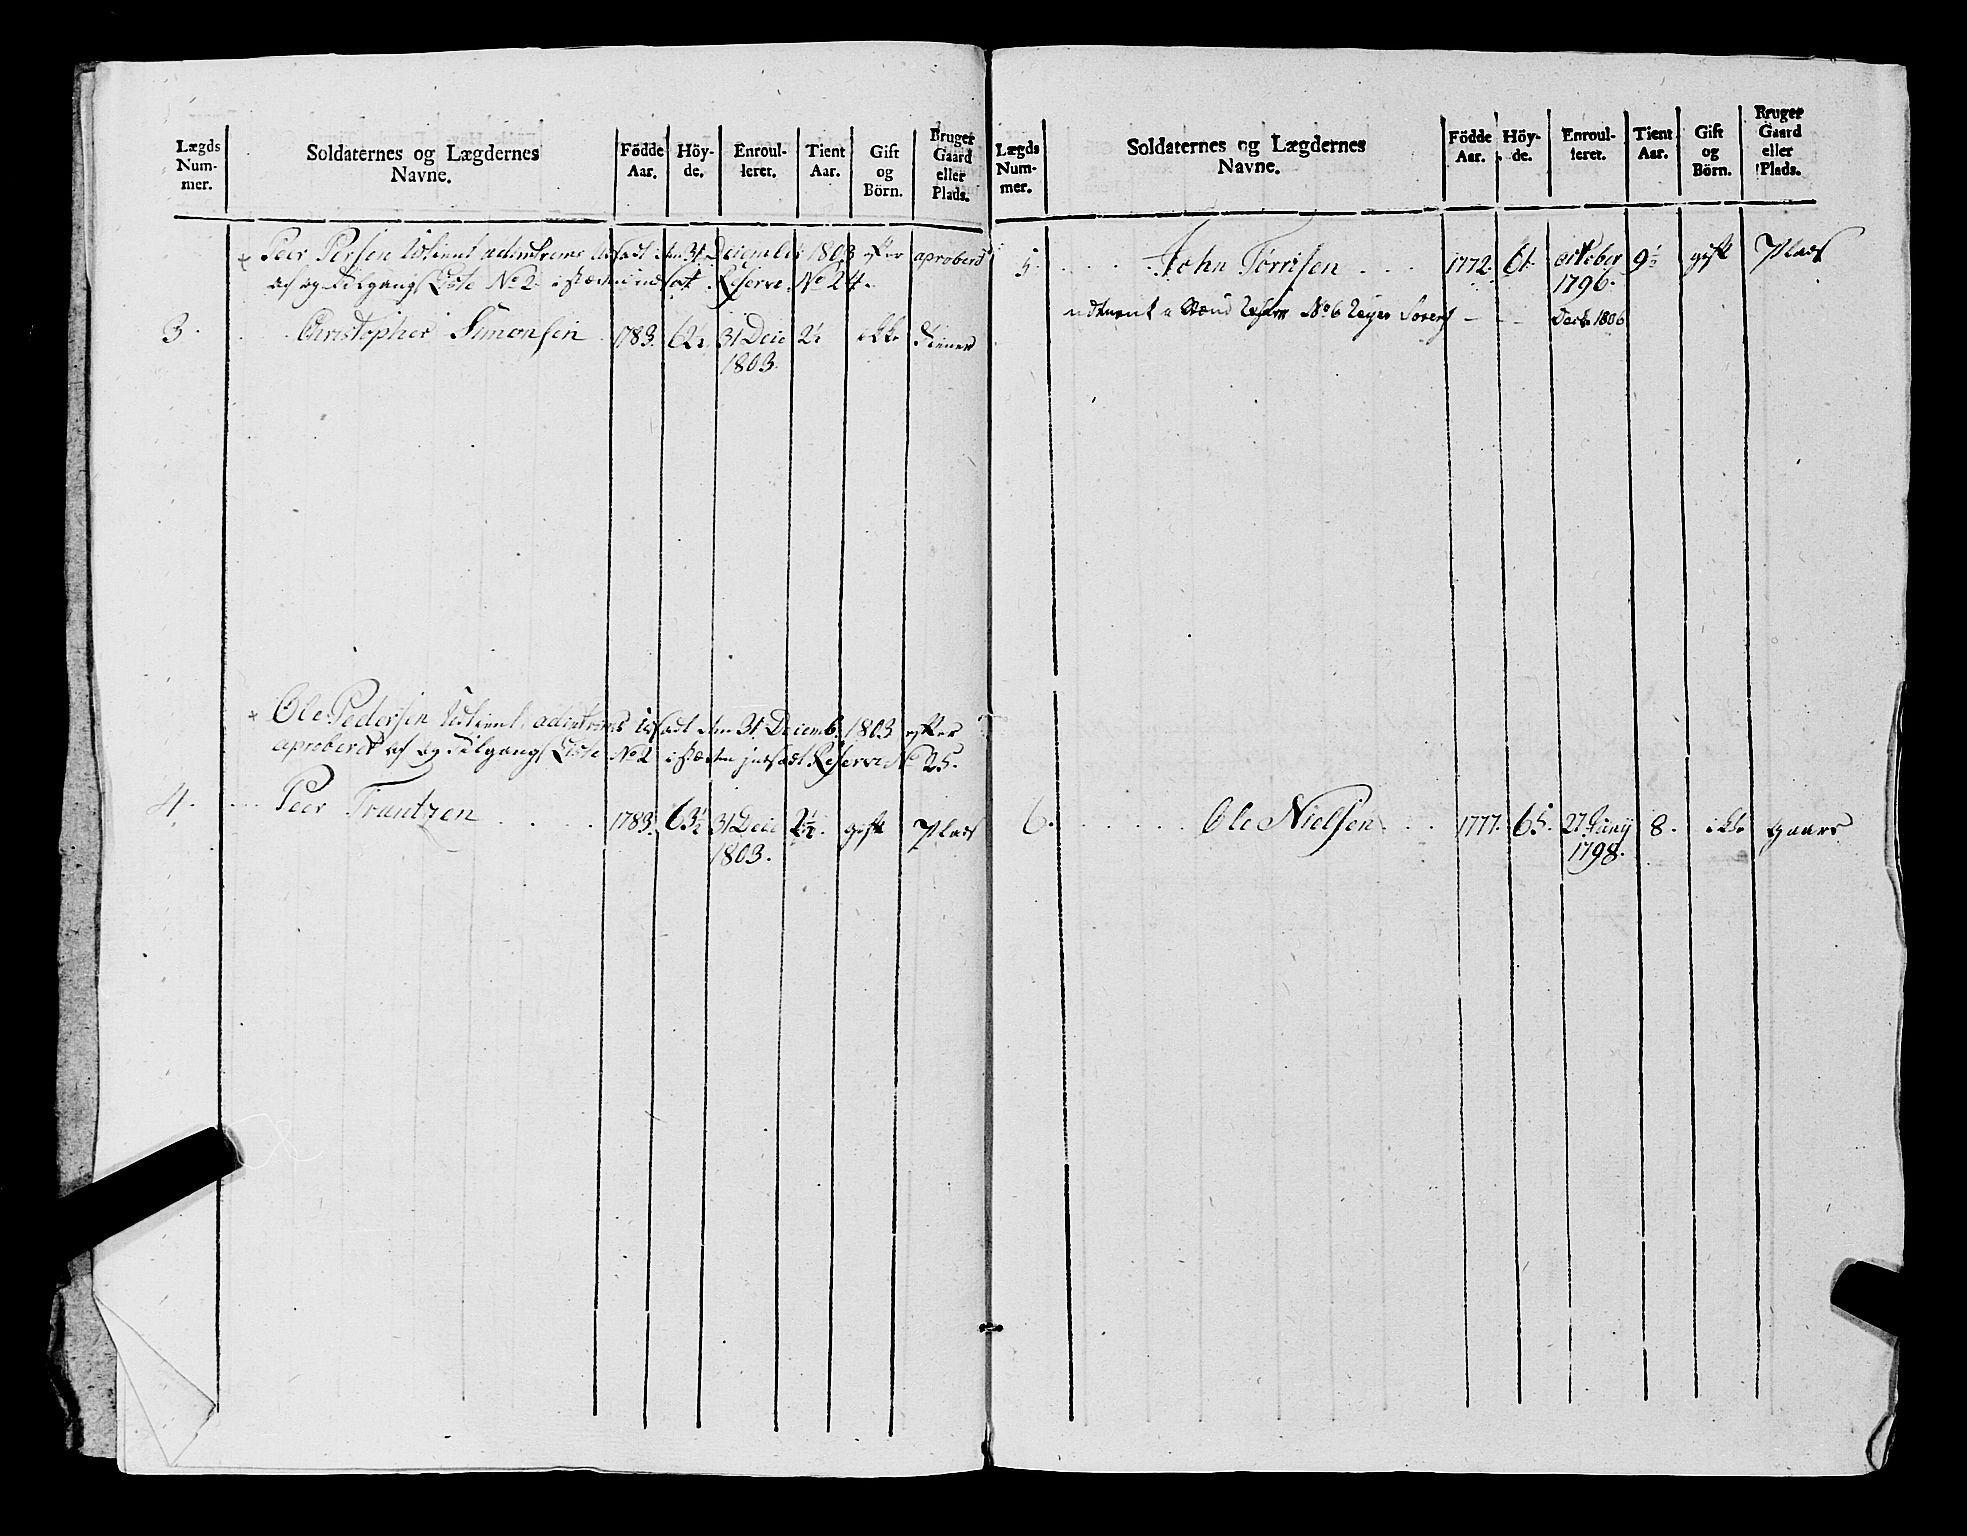 Lægds Num- mer.
Soldaternes og Lægdernes Navne.
Födde Aar.
Höy- de.
Enroul- leret.
Tient Aar.
Gift og Börn.
Bruger Gaard eller Plads.
Peer Persen Udtient den 31 Decembr 1803 efter aproberet
af og Tilgangs Liste No 2 i stæden indsat Reserve No 24.
3. Christopher Simonsen 1783. 62½ 31 Dece 2½ ikke tiener
1803.
Ole Pedersen Udtient den 31 Decemb. 1803 efter
aproberet af og Tilgangs Liste No 2 i stæden indsadt Reserve No 25.
4. Peer Frantzen 1783. 63½ 31 Dece 2½. gift Plads
1803.
Lægds Num- mer.
Soldaternes og Lægdernes Navne.
Födde Aar.
Höy- de.
Enroul- leret.
Tient Aar.
Gift og Börn.
Bruger Gaard eller Plads.
5. John Torrisen 1772. 61. october 9½ gift Plads
1796.
udtient No 6 Decb 1806
6. Ole Nielsen 1777. 65. 27 Juny 8. ikke gaard
1798.